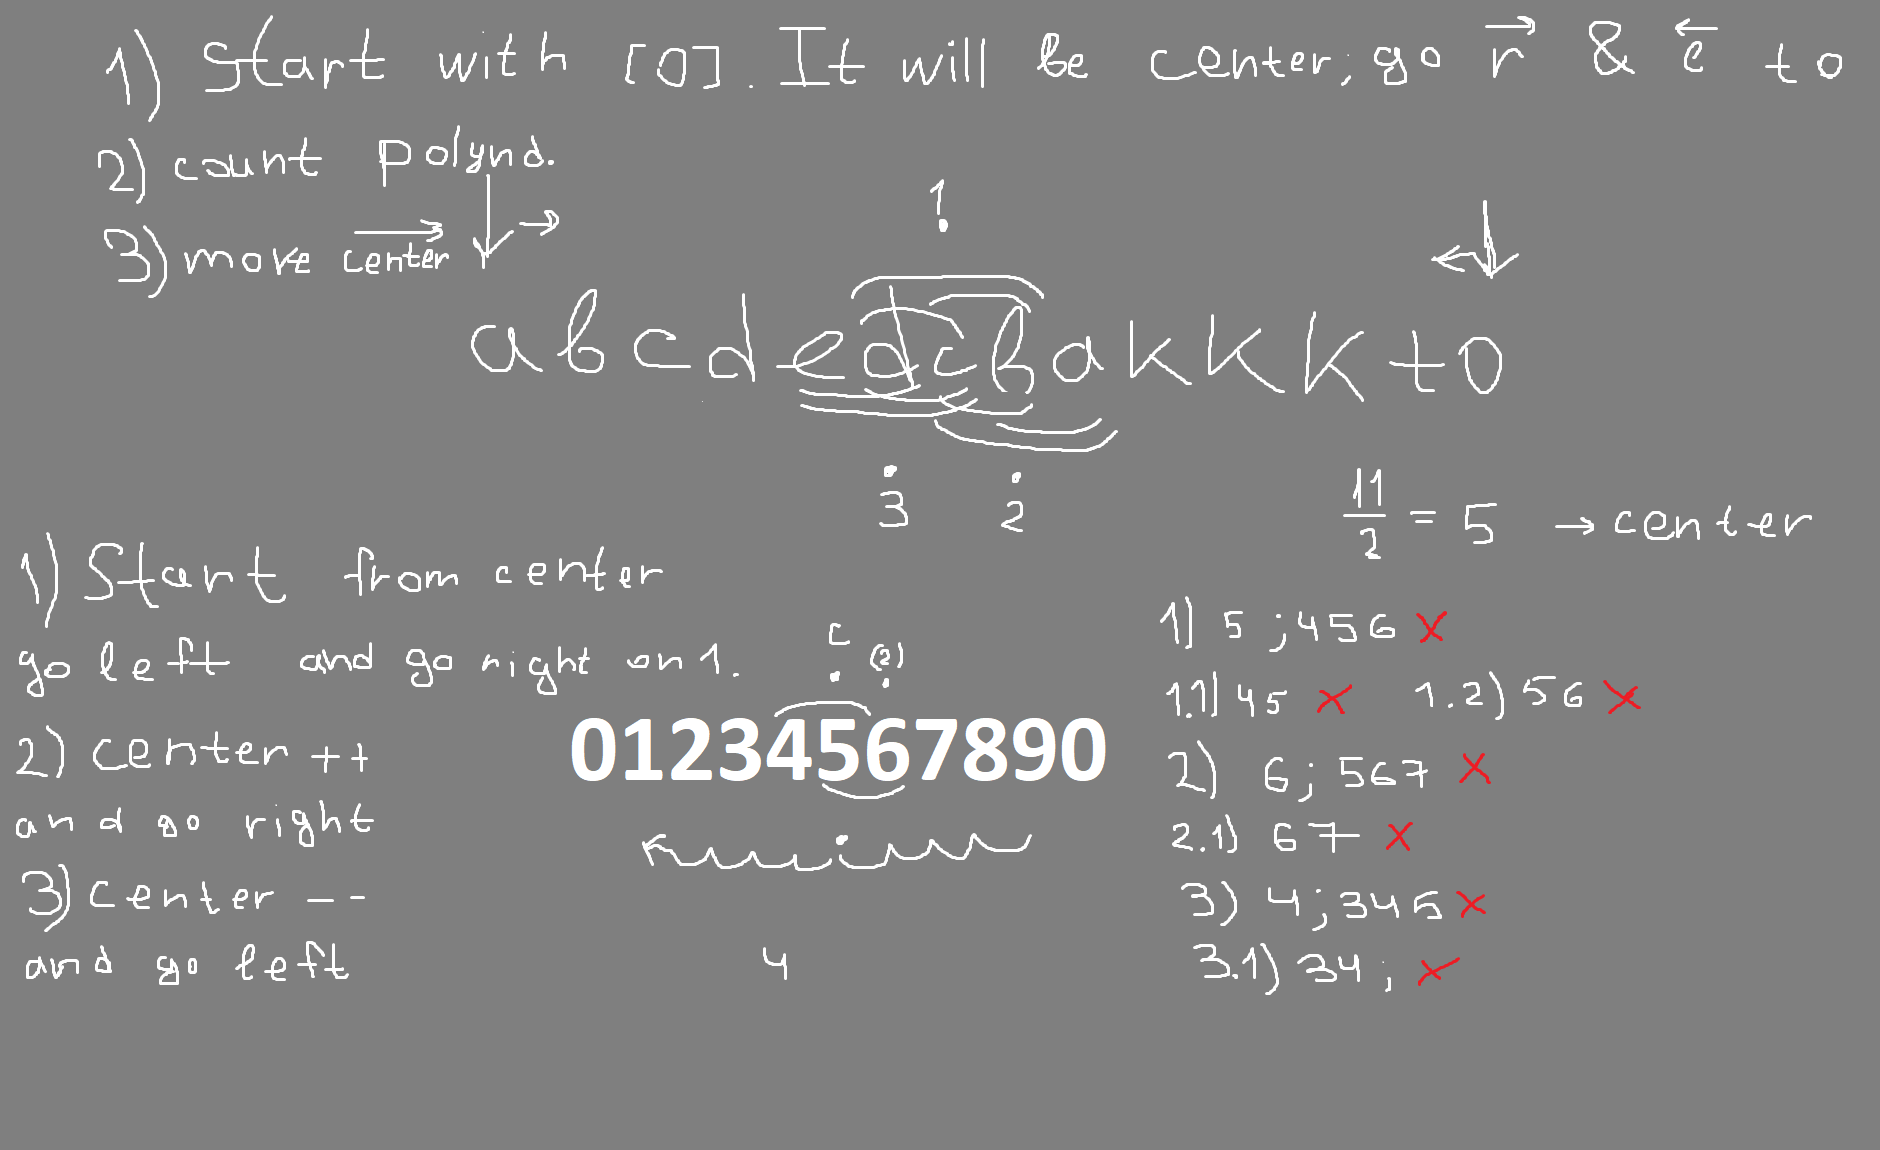 1) Start with [0]. It will be center; go r & e to
2) count polynd.
3) move center
!
abcdedcbakkkto
3 2
11/2 = 5 → center
1) Start from center
go left and go right on 1.
c (2)
01234567890
2) center ++
and go right
3) center --
and go left
4
1) 5 ; 456 x
1.1) 45 x 1.2) 56 x
2) 6; 567 x
2.1) 67 x
3) 4; 345 x
3.1) 34; x